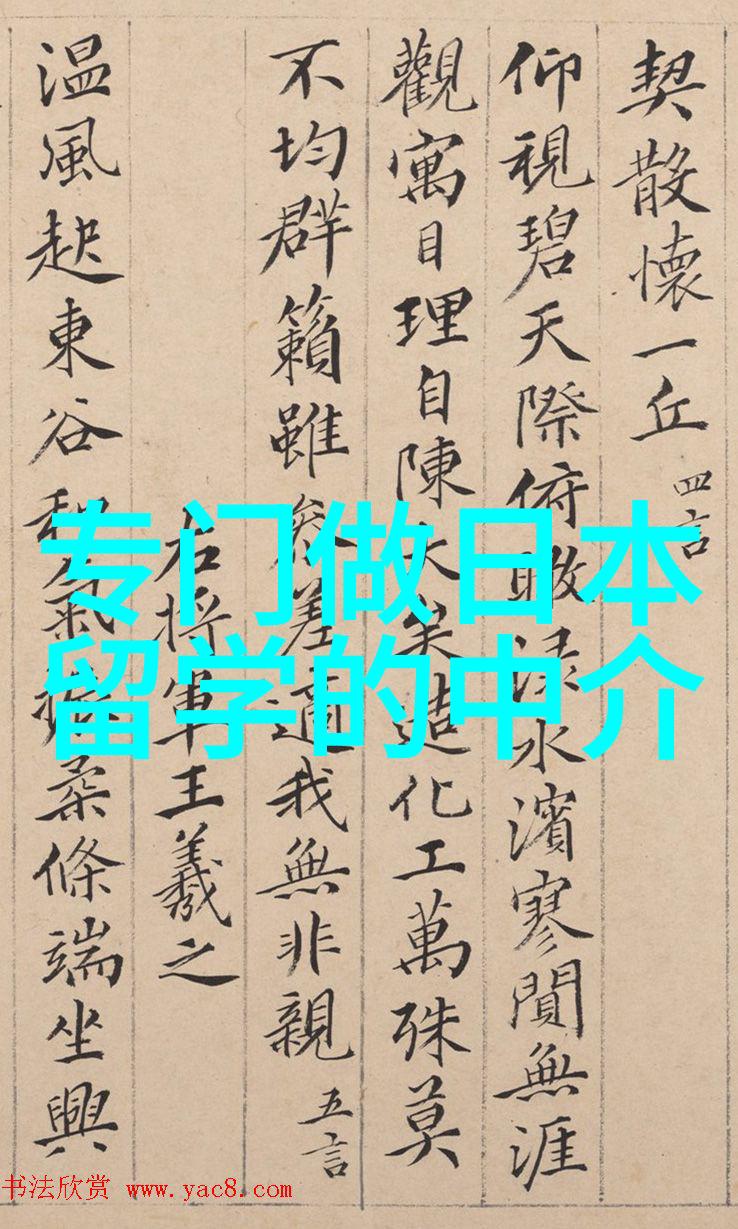 契散懷一丘 四言
仰視碧天際俯瞰淥水濱寥閴無涯
觀寓目理自陳大矣造化工萬殊莫
不均群籟雖參差適我無非親 五言
右將軍王羲之
温風起東谷和氣振柔條端坐興
专门做日本
留学的中介
书法欣赏 www.yac8.com